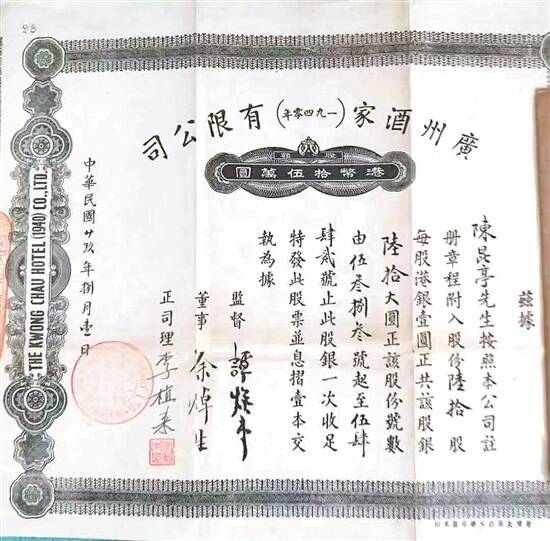 廣州酒家(一九四零年)有限公司
股額
港幣拾伍萬圓
茲據
陳昆亭先生按照本公司註
册章程附入股份陸拾股
每股港銀壹圓正共該股銀
陸拾大圓正該股份號數
由伍叁捌叁號起至伍肆
肆貳號止此股銀一次收足
特發此股票並息摺壹本交
執為據
監督 譚
董事 余焯生
正司理 李植
中華民國廿玖年捌月壹日
THE KWONG CHAU HOTEL (1940) CO., LTD.